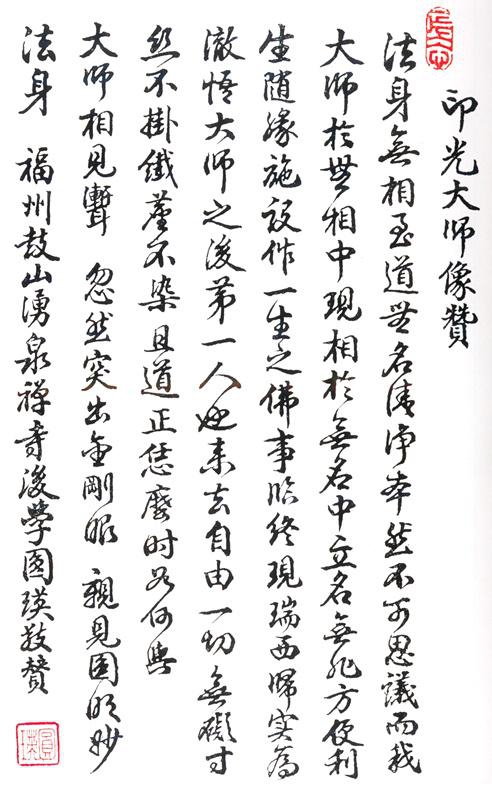 印光大师像贊
法身無相至道無名清净本然不可思議而我
大师於無相中現相於無名中立名無非方便利
生随緣施設作一生之佛事臨終現瑞西歸实為
澈悟大师之後第一人也来去自由一切無礙寸
丝不掛纖塵不染且道正恁麽时如何與
大师相見聻 忽然突出金剛眼 親見圆明妙
法身 福州鼓山湧泉禅寺後學圆瑛敬贊
圓瑛